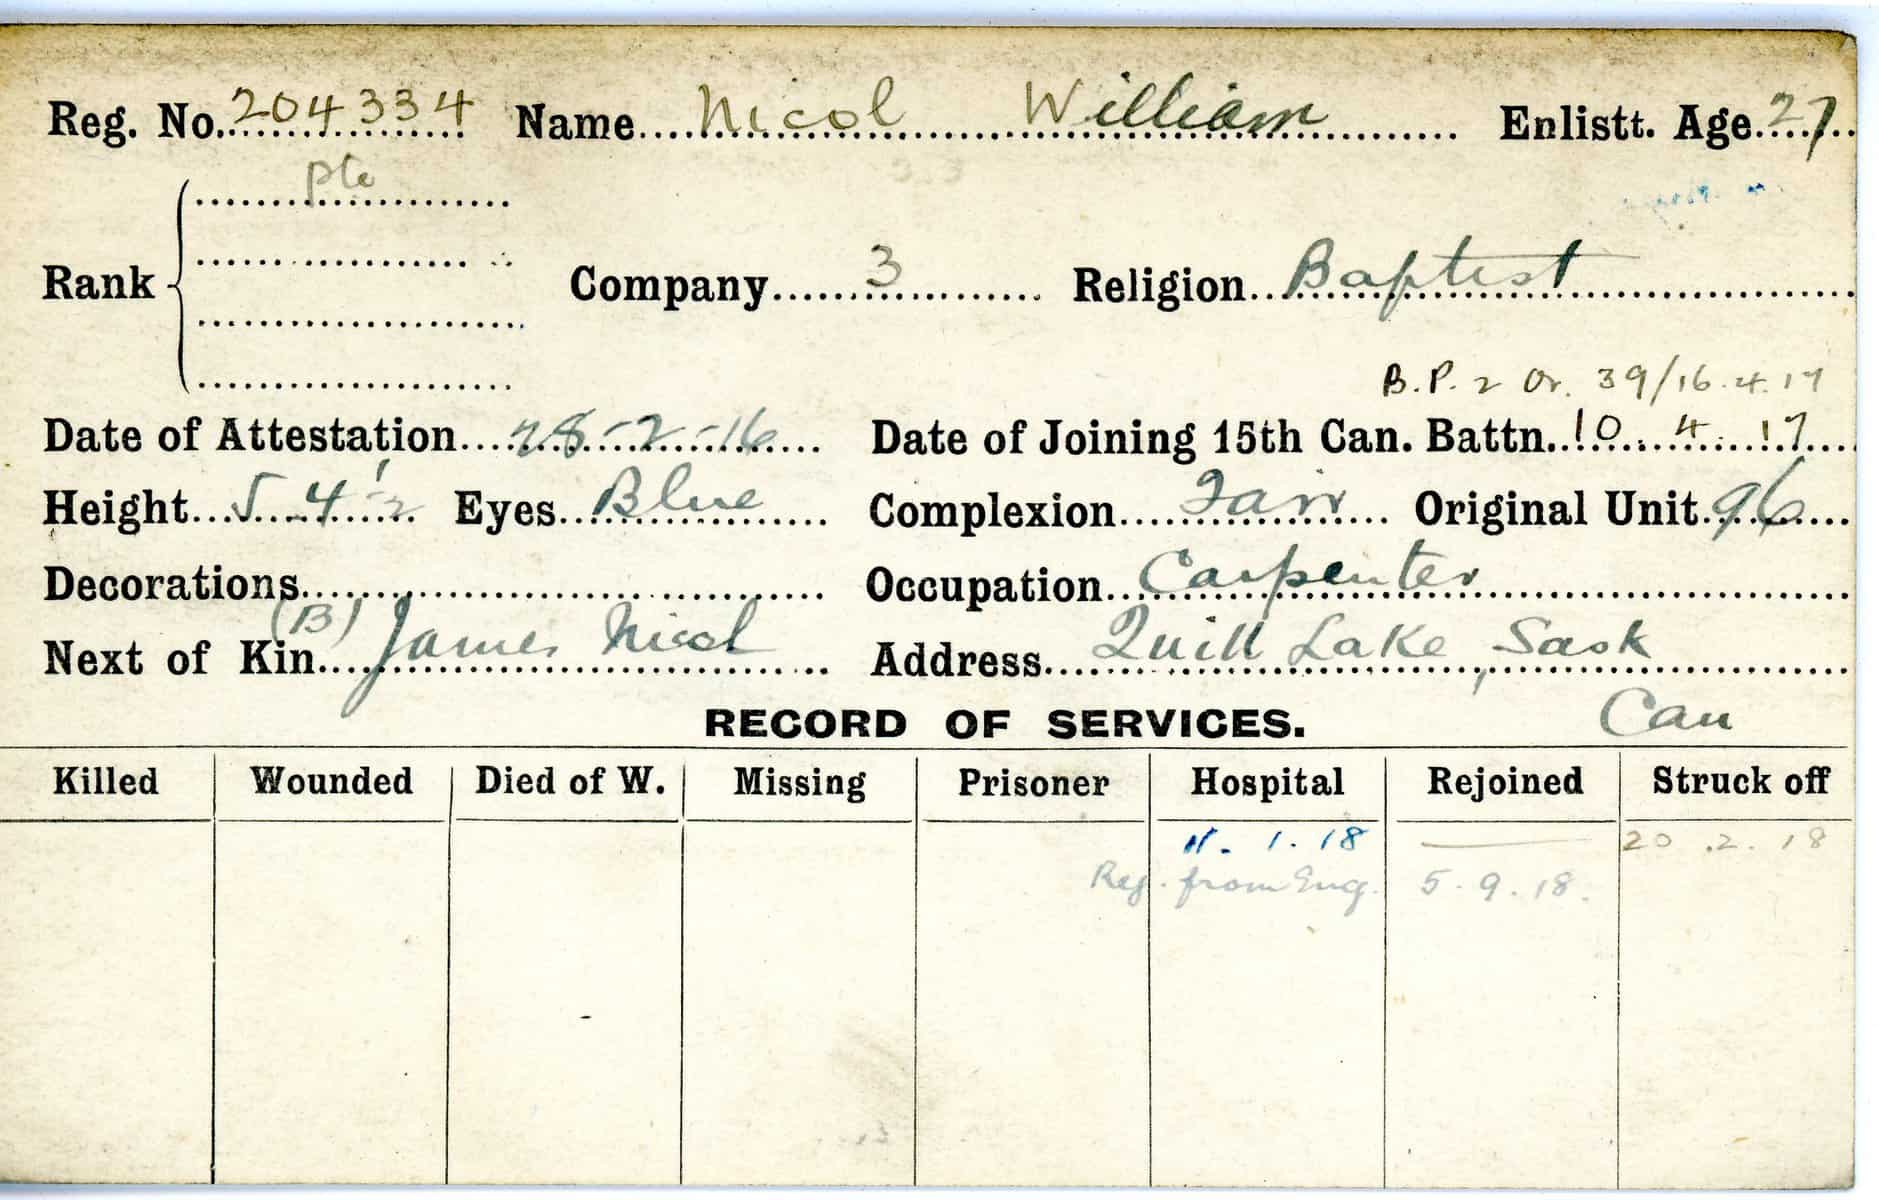 Reg. No. 204334 Name Nicol William Enlistt. Age 27
Pte
Rank
Company 3 Religion Baptist
B.P. 2 Or. 39/16.4.17
Date of Attestation 28-2-16 Date of Joining 15th Can. Battn. 10.4.17
Height 5 4 1/2 Eyes Blue Complexion Fair Original Unit 96
Decorations Occupation Carpenter
Next of Kin (B) James Nicol Address Quill Lake, Sask
Can
RECORD OF SERVICES.
Killed Wounded Died of W. Missing Prisoner Hospital Rejoined Struck off
11.1.18 — 20.2.18
from Eng. 5.9.18.